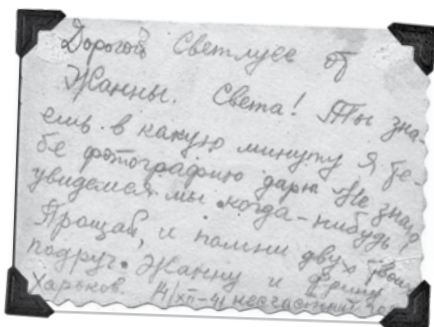 Дорогой Светлусе от
Жанны. Света! Ты зна-
ешь в какую минуту я те-
бе фотографию дарю. Не знаю
увидемся мы когда-нибудь
Прощай, и помни двух твоих
подруг. Жанну и Фриду
Харьков. 14/XII-41 несчастный год